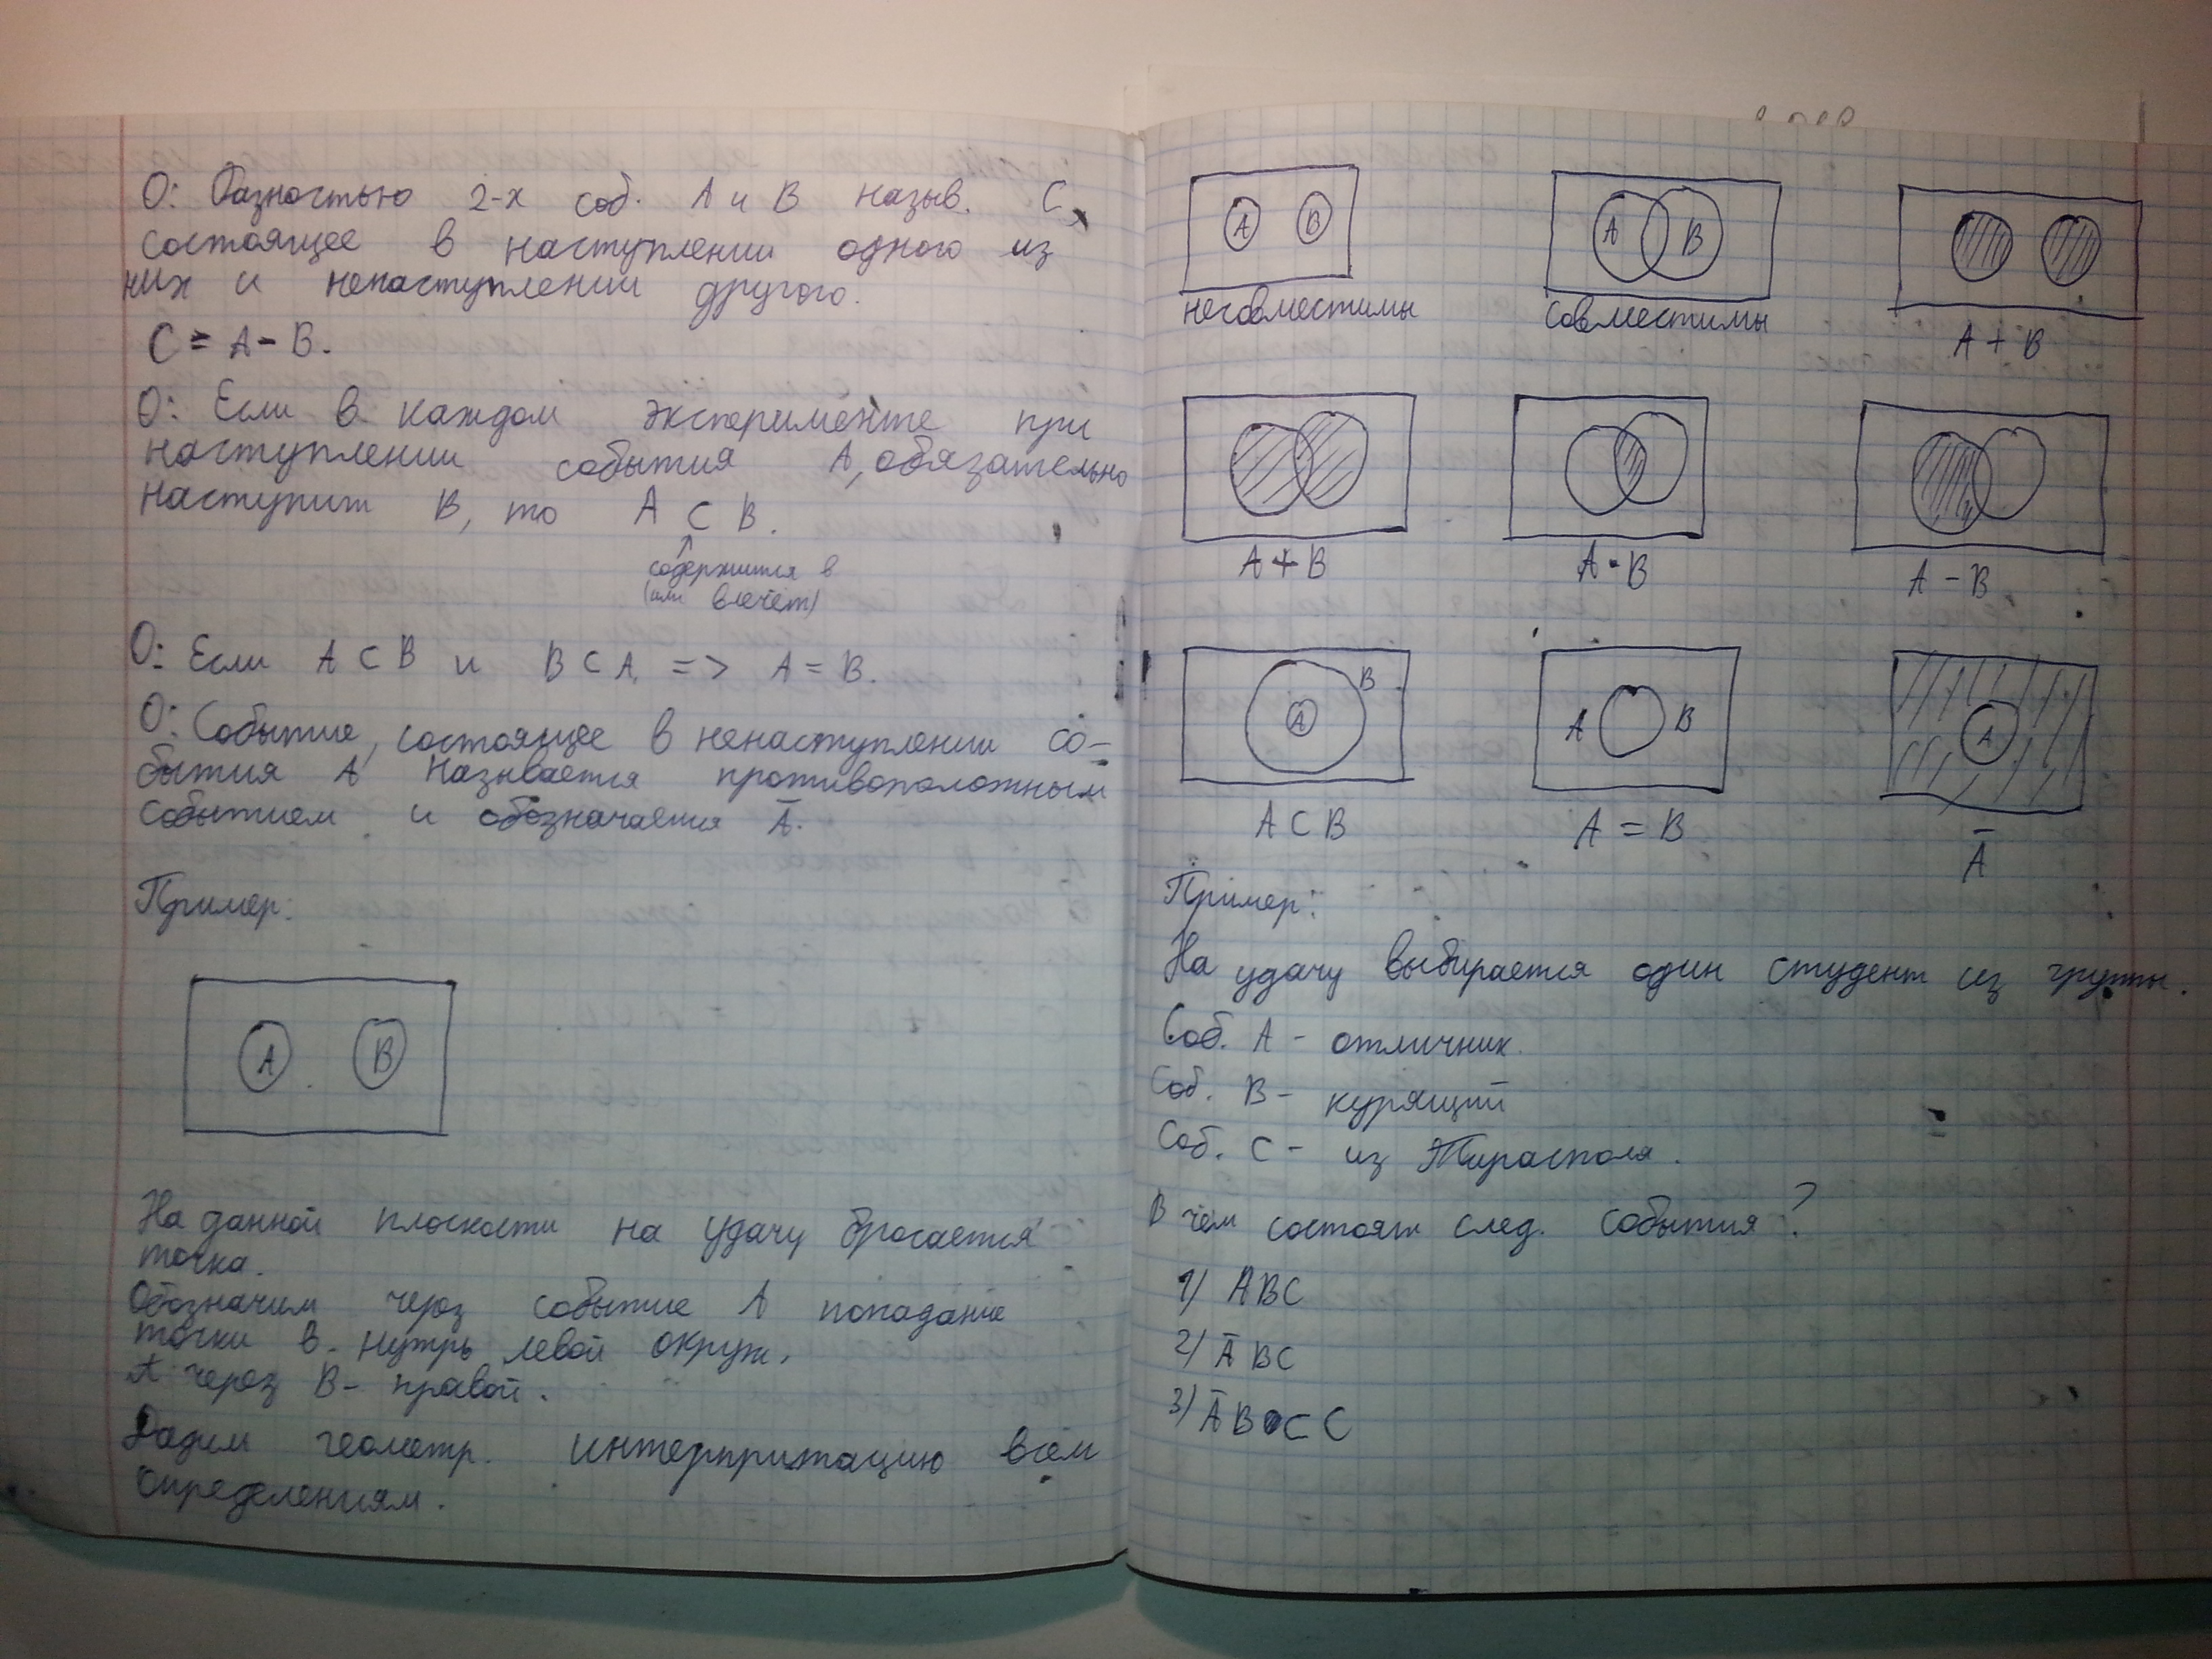 О: Разностью 2-х соб. A и B назыв. C,
состоящее в наступлении одного из
них и ненаступлении другого.
C = A - B.
О: Если в каждом эксперименте при
наступлении события A, обязательно
наступит B, то A ⊂ B.
содержится в
(или влечёт)
О: Если A ⊂ B и B ⊂ A, => A = B.
О: Событие, состоящее в ненаступлении со-
бытия A называется противоположным
событием и обозначается Ā.
Пример:
A B
На данной плоскости на удачу бросается
точка.
Обозначим через событие A попадание
точки в нутрь левой окруж.
A через B - правой.
Дадим геометр. интерпритацию всем
определениям.
A B A B
несовместимы совместимы A + B
A + B A · B A - B
A B A B A
A ⊂ B A = B Ā
Пример:
На удачу выбирается один студент из группы.
Соб. A - отличник.
Соб. B - курящий
Соб. C - из Тирасполя.
В чём состоят след. события?
1) ABC
2) ĀBC
3) ĀB ⊂ C